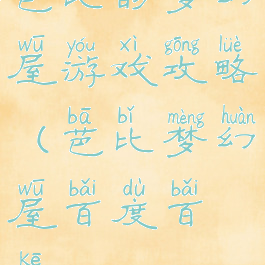 芭比的梦幻
wū yóu xì gōng lüè
屋游戏攻略
bā bǐ mèng huàn
（芭比梦幻
wū bǎi dù bǎi
屋百度百
kē